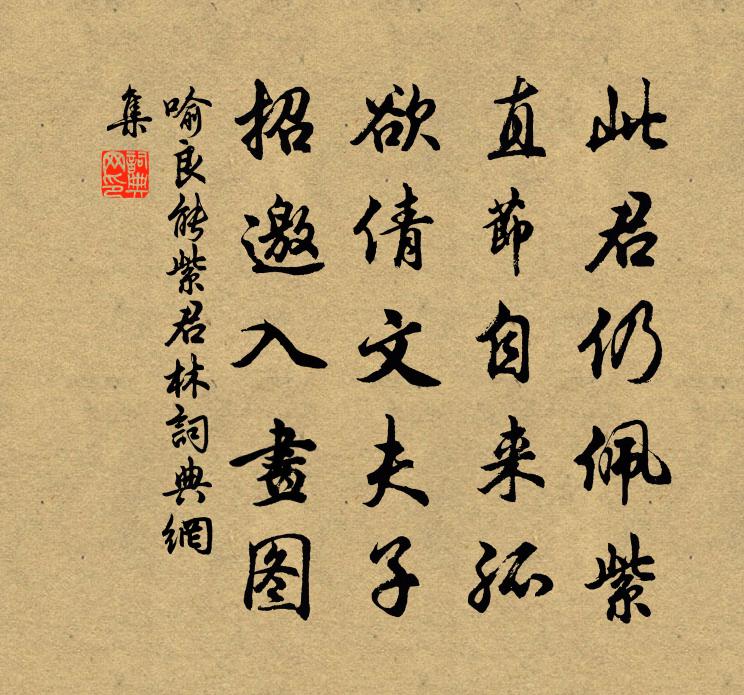 此君仍佩紫
直節自来孤
欲倩文夫子
招邀入畫图
喻良能紫君林詞典網
集
詞典网印